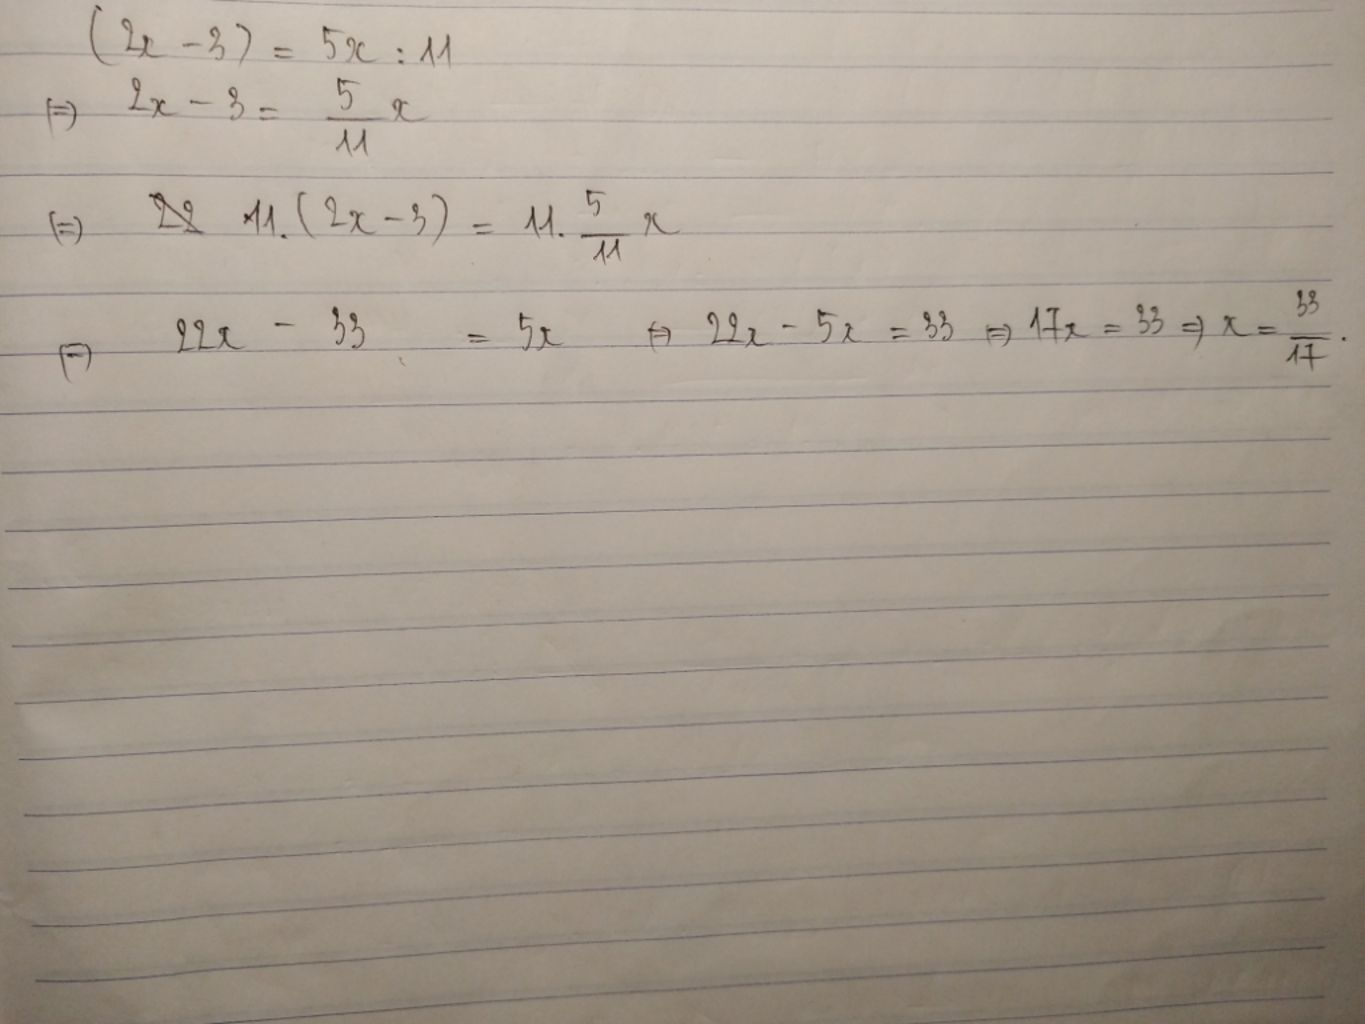 (2x - 3) = 5x : 11
(=) 2x - 3 = 5/11 x
(=) 11.(2x - 3) = 11. 5/11 x
(=) 22x - 33 = 5x ⇔ 22x - 5x = 33 ⇔ 17x = 33 ⇒ x = 33/17.